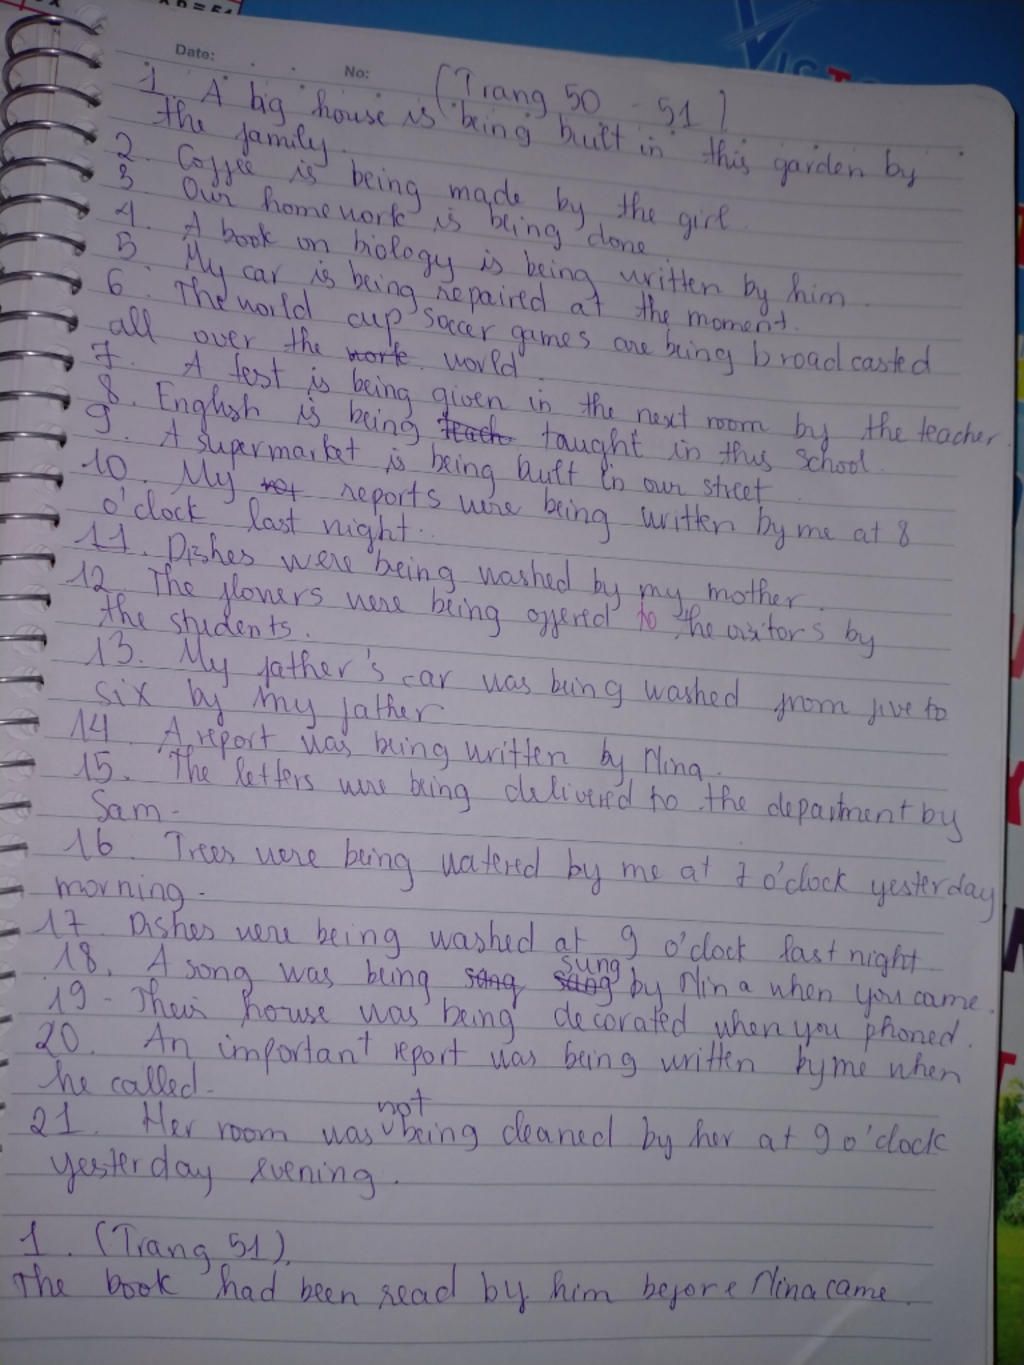 Date:
No:
(Trang 50 - 51)
1. A big house is being built in this garden by
the family.
2. Coffee is being made by the girl.
3. Our homework is being done
4. A book on biology is being written by him.
5. My car is being repaired at the moment.
6. The world cup soccer games are being broadcasted
all over the work world.
7. A test is being given in the next room by the teacher.
8. English is being teach taught in this school.
9. A supermarket is being built in our street.
10. My reports were being written by me at 8
o'clock last night.
11. Dishes were being washed by my mother.
12. The flowers were being offered to the visitors by
the students.
13. My father's car was being washed from five to
six by my father
14. A report was being written by Nina.
15. The letters were being delivered to the department by
Sam.
16. Trees were being watered by me at 7 o'clock yesterday
morning.
17. Dishes were being washed at 9 o'clock last night
18. A song was being sang sung by Nina when you came.
19. Their house was being decorated when you phoned.
20. An important report was being written by me when
he called.
21. Her room was not being cleaned by her at 9 o'clock
yesterday evening.
1. (Trang 51).
The book had been read by him before Nina came.